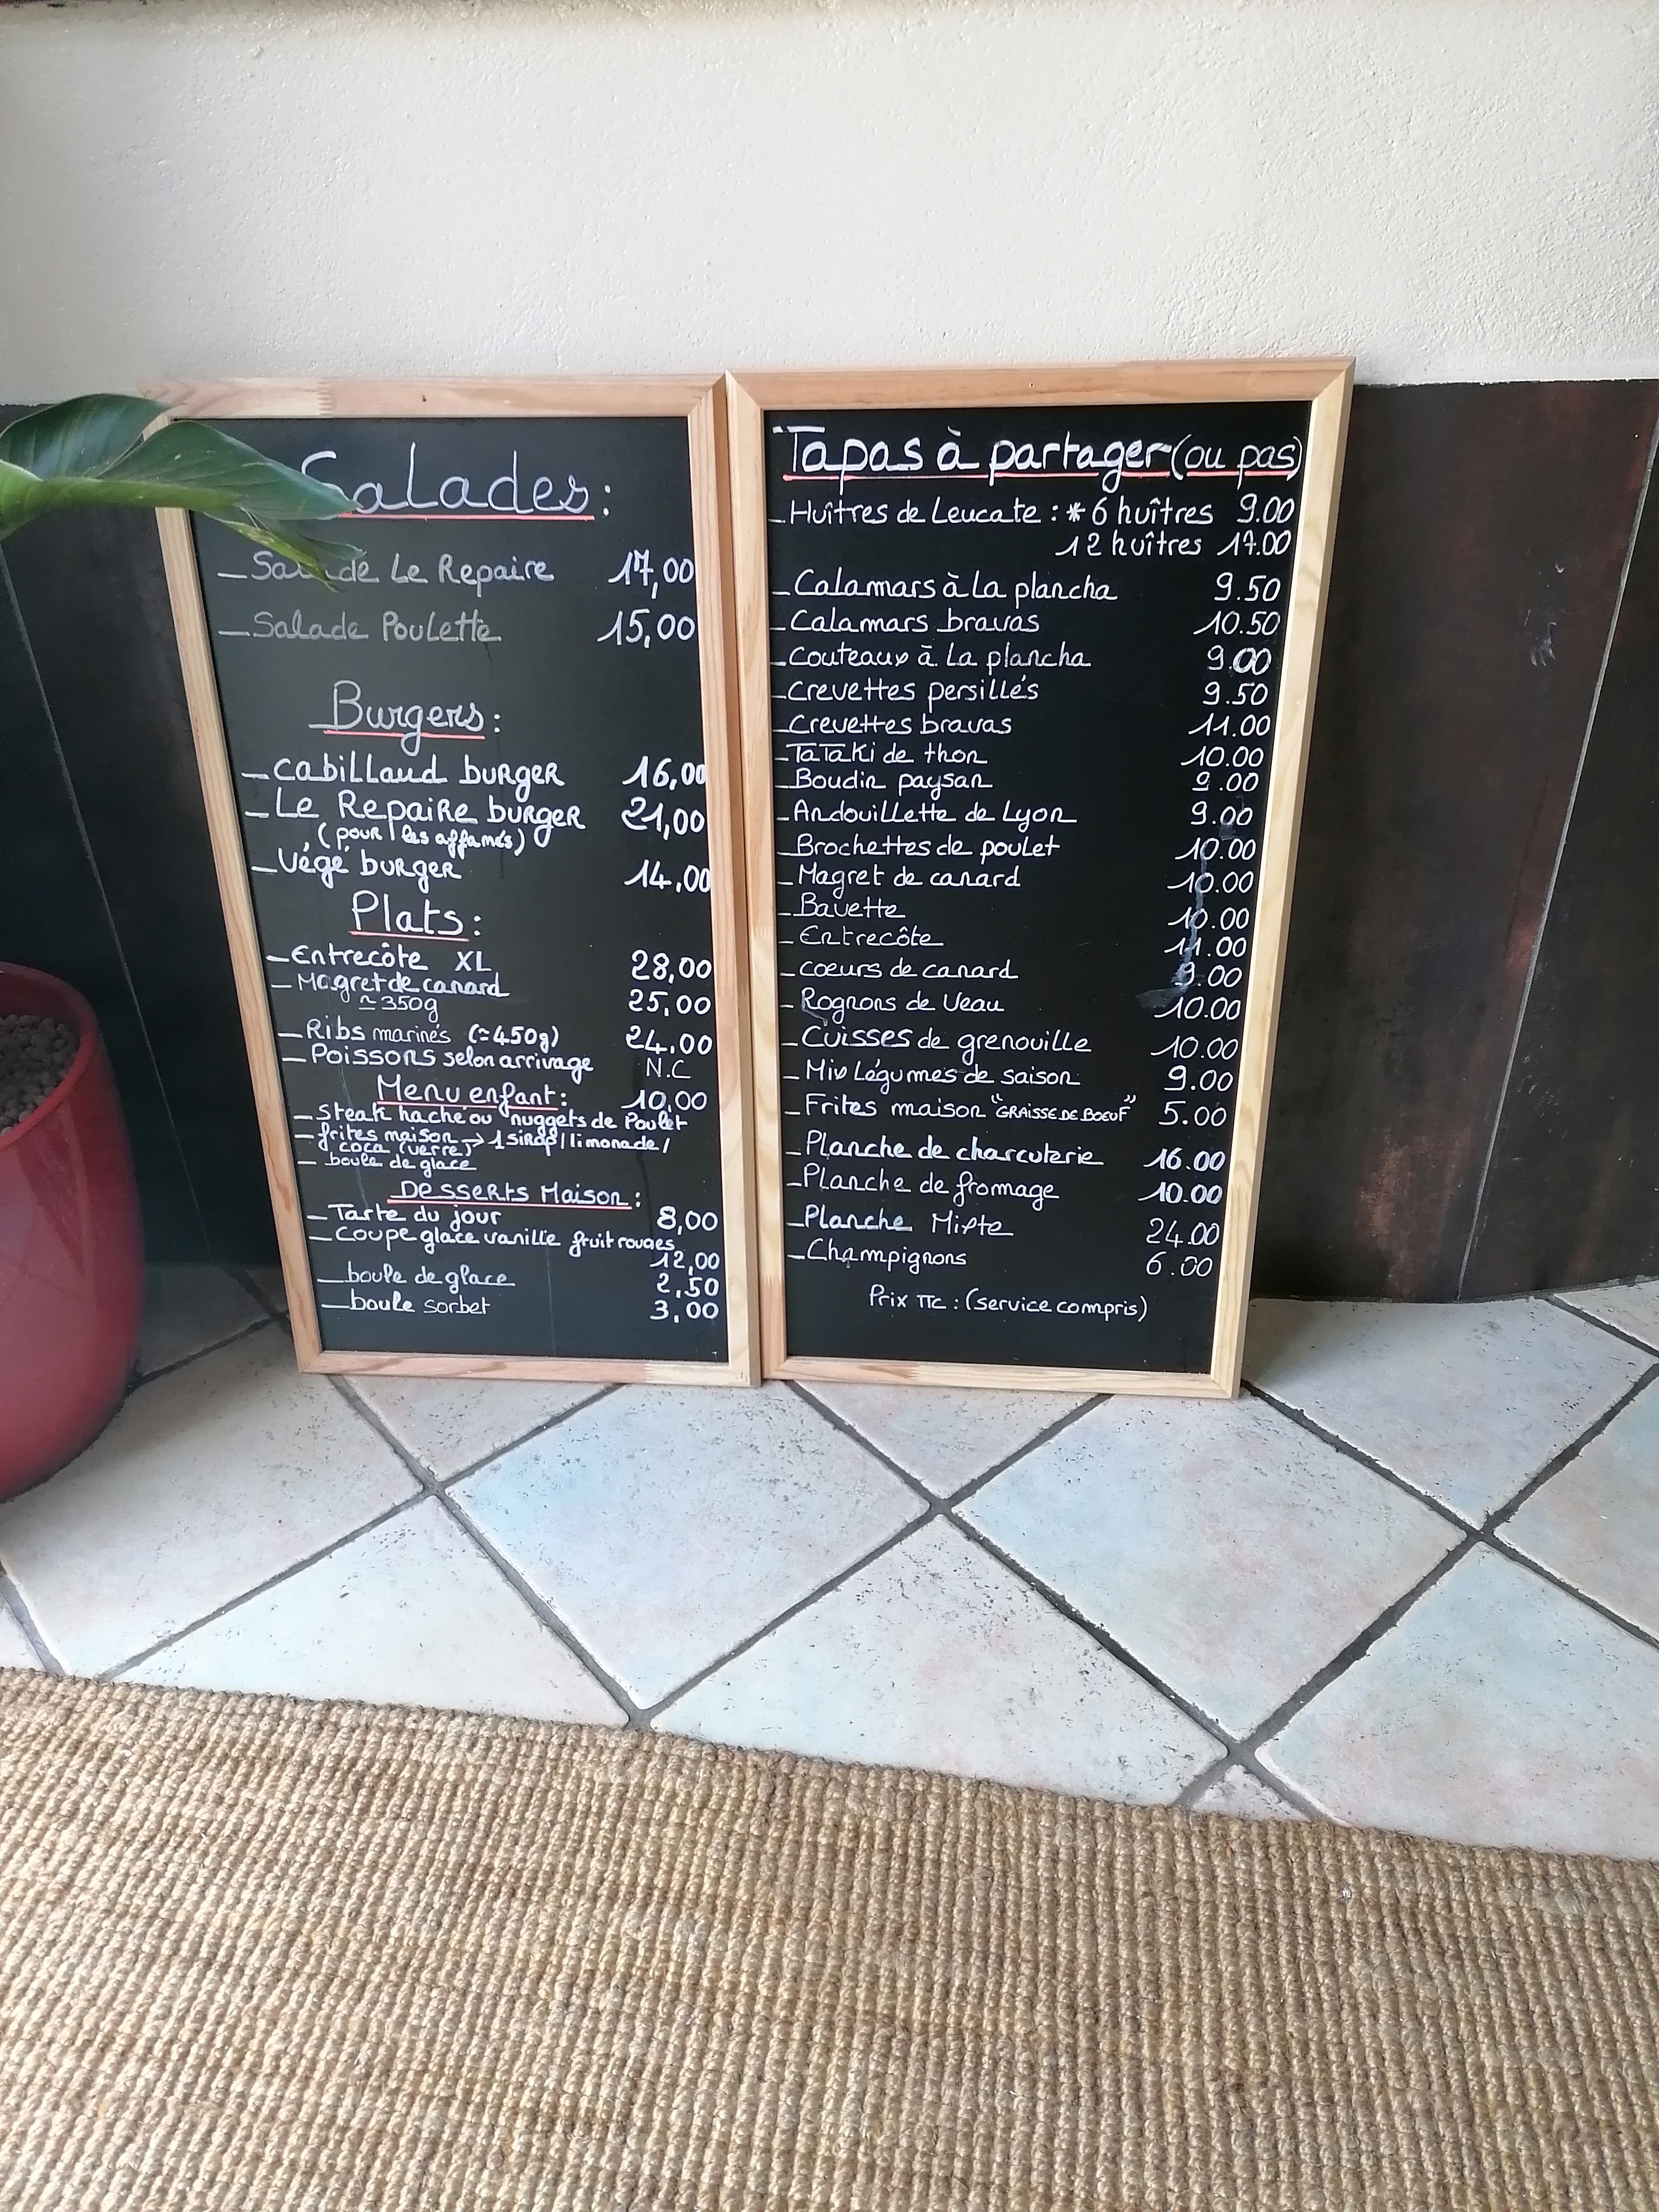 Salades :
_ Salade Le Repaire 17,00
_ Salade Poulette 15,00
Burgers :
_ Cabillaud burger 16,00
_ Le Repaire burger 21,00
(pour les affamés)
_ Végé burger 14,00
Plats :
_ Entrecôte XL 28,00
_ Magret de canard
≃ 350g 25,00
_ Ribs marinés (≃450g) 24,00
_ Poissons selon arrivage N.C
Menu enfant : 10,00
_ Steak haché ou nuggets de Poulet
_ frites maison → 1 sirop / limonade /
coca (verre)
_ boule de glace
Desserts Maison :
_ Tarte du jour 8,00
_ Coupe glace vanille fruit rouges
12,00
_ boule de glace 2,50
_ boule sorbet 3,00
Tapas à partager (ou pas)
_ Huîtres de Leucate : * 6 huîtres 9.00
12 huîtres 17.00
_ Calamars à La plancha 9.50
_ Calamars bravas 10.50
_ Couteaux à La plancha 9.00
_ Crevettes persillés 9.50
_ Crevettes bravas 11.00
_ TaTaKi de thon 10.00
_ Boudin paysan 9.00
_ Andouillette de Lyon 9.00
_ Brochettes de poulet 10.00
_ Magret de canard 10.00
_ Bavette 10.00
_ Entrecôte 11.00
_ coeurs de canard 9.00
_ Rognons de Veau 10.00
_ Cuisses de grenouille 10.00
_ Mix Légumes de saison 9.00
_ Frites maison "GRAISSE DE BOEUF" 5.00
_ Planche de charcuterie 16.00
_ Planche de fromage 10.00
_ Planche Mixte 24.00
_ Champignons 6.00
Prix TTC : (service compris)